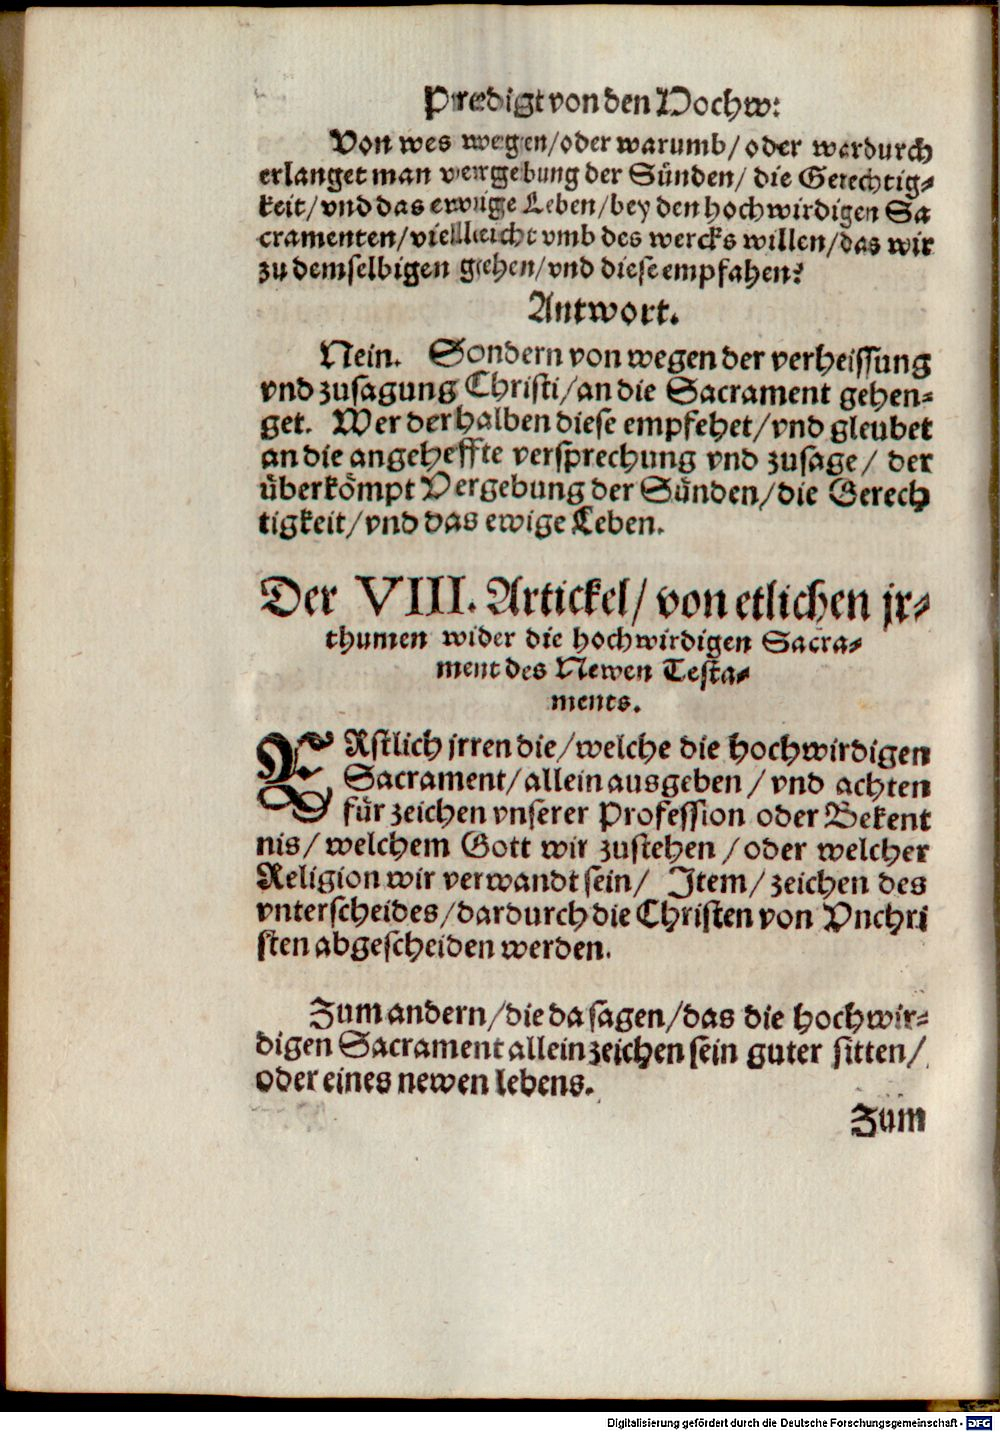 Predigt von den Hochw:
Von wes wegen/oder warumb/oder wardurch
erlanget man vergebung der Sünden/ die Gerechtig⸗
keit/vnd das ewige Leben/bey den hochwirdigen Sa
cramenten/vielleicht vmb des wercks willen/das wir
zu demselbigen gehen/vnd diese empfahen?
Antwort.
Nein. Sondern von wegen der verheissung
vnd zusagung Christi/an die Sacrament gehen⸗
get. Wer derhalben diese empfehet/vnd gleubet
an die angeheffte versprechung vnd zusage/ der
überkömpt Vergebung der Sünden/die Gerech
tigkeit/vnd das ewige Leben.
Der VIII. Artickel/ von etlichen jr⸗
thumen wider die hochwirdigen Sacra⸗
ment des Newen Testa⸗
ments.
ERstlich jrren die/welche die hochwirdigen
Sacrament/allein ausgeben/ vnd achten
für zeichen vnserer Profession oder Bekent
nis/ welchem Gott wir zustehen/oder welcher
Religion wir verwandt sein/ Jtem/ zeichen des
vnterscheides/dardurch die Christen von Vnchri
sten abgescheiden werden.
Zum andern/die da sagen/das die hochwir⸗
digen Sacrament allein zeichen sein guter sitten/
oder eines newen lebens.
Zum
Digitalisierung gefördert durch die Deutsche Forschungsgemeinschaft - DFG